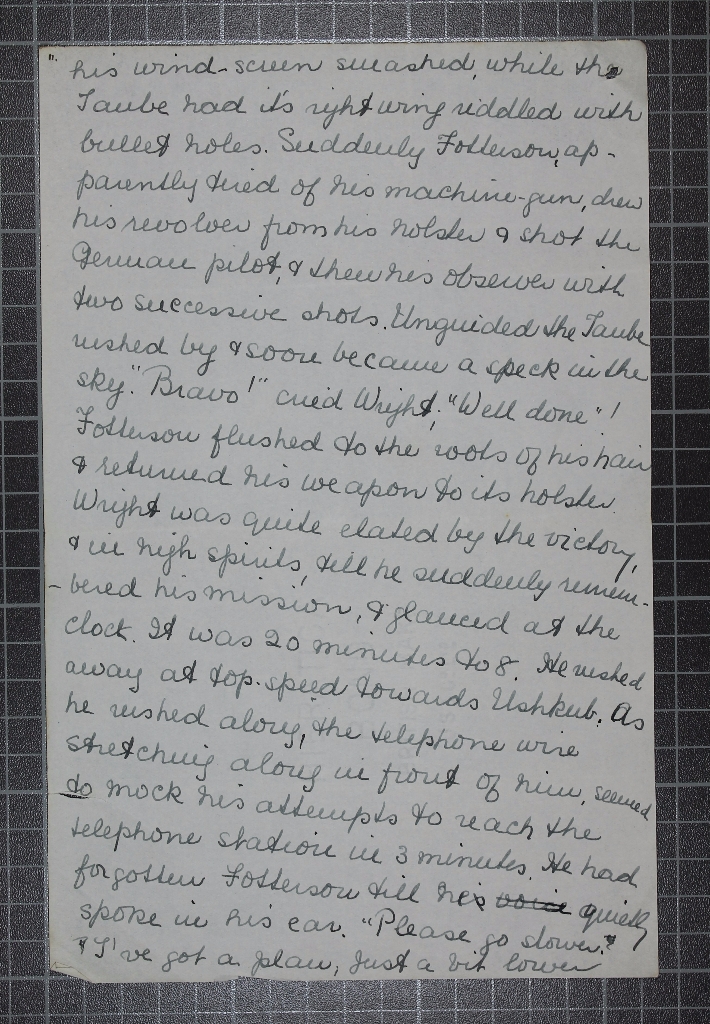 his wind-screen smashed, while the
Taube had it's right wing riddled with
bullet holes. Suddenly Fotterson, ap-
parently tired of his machine-gun, drew
his revolver from his holster & shot the
German pilot, & then his observer with
two successive shots. Unguided the Taube
rushed by & soon became a speck in the
sky. "Bravo!" cried Wright, "Well done"!
Fotterson flushed to the roots of his hair
& returned his weapon to its holster.
Wright was quite elated by the victory,
& in high spirits, till he suddenly remem-
bered his mission, & glanced at the
clock. It was 20 minutes to 8. He rushed
away at top-speed towards Ushkub. As
he rushed along, the telephone wire
stretching along in front of him, seemed
to mock his attempts to reach the
telephone station in 3 minutes. He had
forgotten Fotterson till he voice quietly
spoke in his ear. "Please go slower."
"I've got a plan, just a bit lower